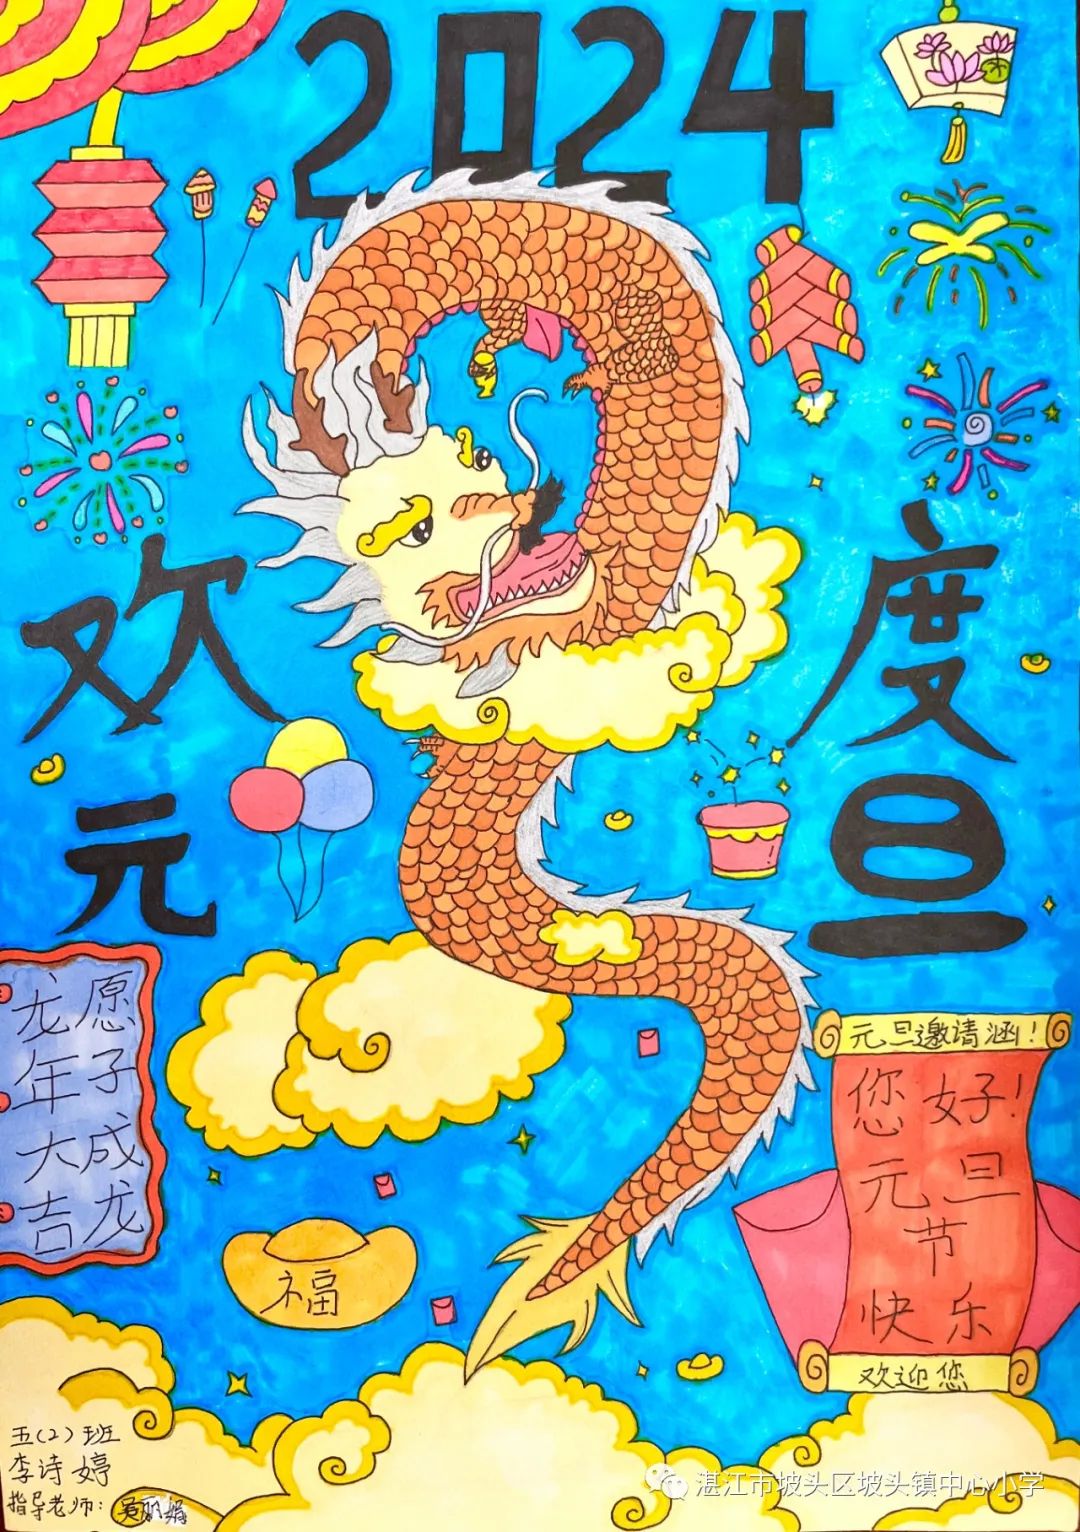 2024
欢度
元旦
愿子成龙
龙年大吉
福
元旦邀请涵！
您好！
元旦
节
快乐
欢迎您
五（2）班
李诗婷
指导老师：吴丽娟
湛江市坡头区坡头镇中心小学